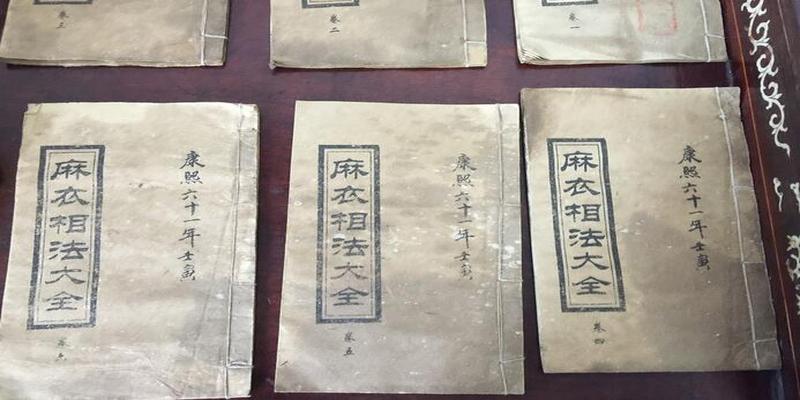 卷三
卷二
卷一
麻衣相法大全
康熙六十一年壬寅
卷六
麻衣相法大全
康熙六十一年壬寅
卷五
麻衣相法大全
康熙六十一年壬寅
卷四